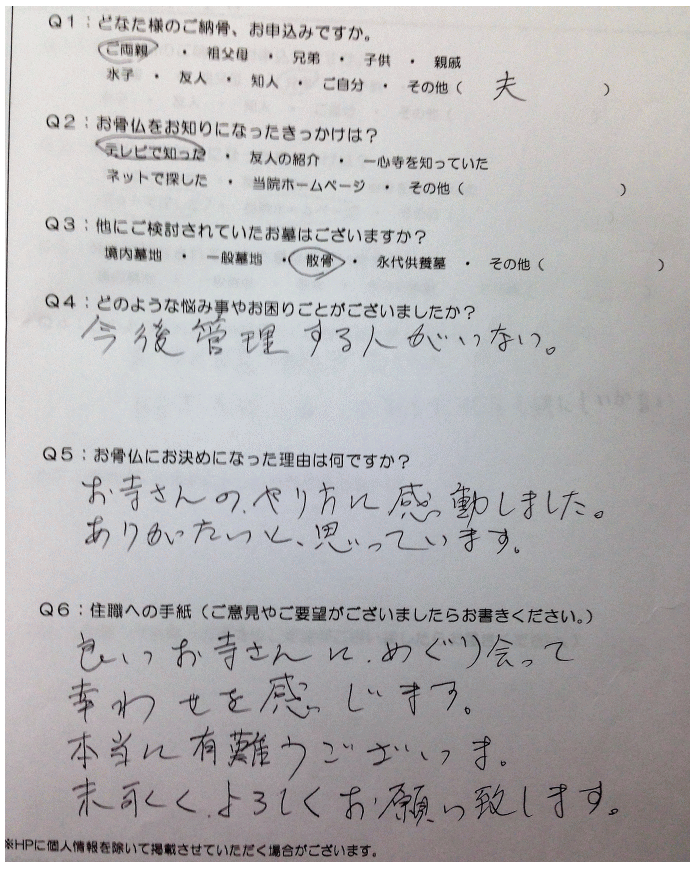 Q1：どなた様のご納骨、お申込みですか。
ご両親 ・ 祖父母 ・ 兄弟 ・ 子供 ・ 親戚
水子 ・ 友人 ・ 知人 ・ ご自分 ・ その他（ 夫 ）
Q2：お骨仏をお知りになったきっかけは？
テレビで知った ・ 友人の紹介 ・ 一心寺を知っていた
ネットで探した ・ 当院ホームページ ・ その他（ ）
Q3：他にご検討されていたお墓はございますか？
境内墓地 ・ 一般墓地 ・ 散骨 ・ 永代供養墓 ・ その他（ ）
Q4：どのような悩み事やお困りごとがございましたか？
今後管理する人がいない。
Q5：お骨仏にお決めになった理由は何ですか？
お寺さんの、やり方に感動しました。
ありがたいと、思っています。
Q6：住職への手紙（ご意見やご要望がございましたらお書きください。）
良いお寺さんに、めぐり会って
幸わせを感じます。
本当に有難うございま。
末永く、よろしくお願い致します。
※HPに個人情報を除いて掲載させていただく場合がございます。